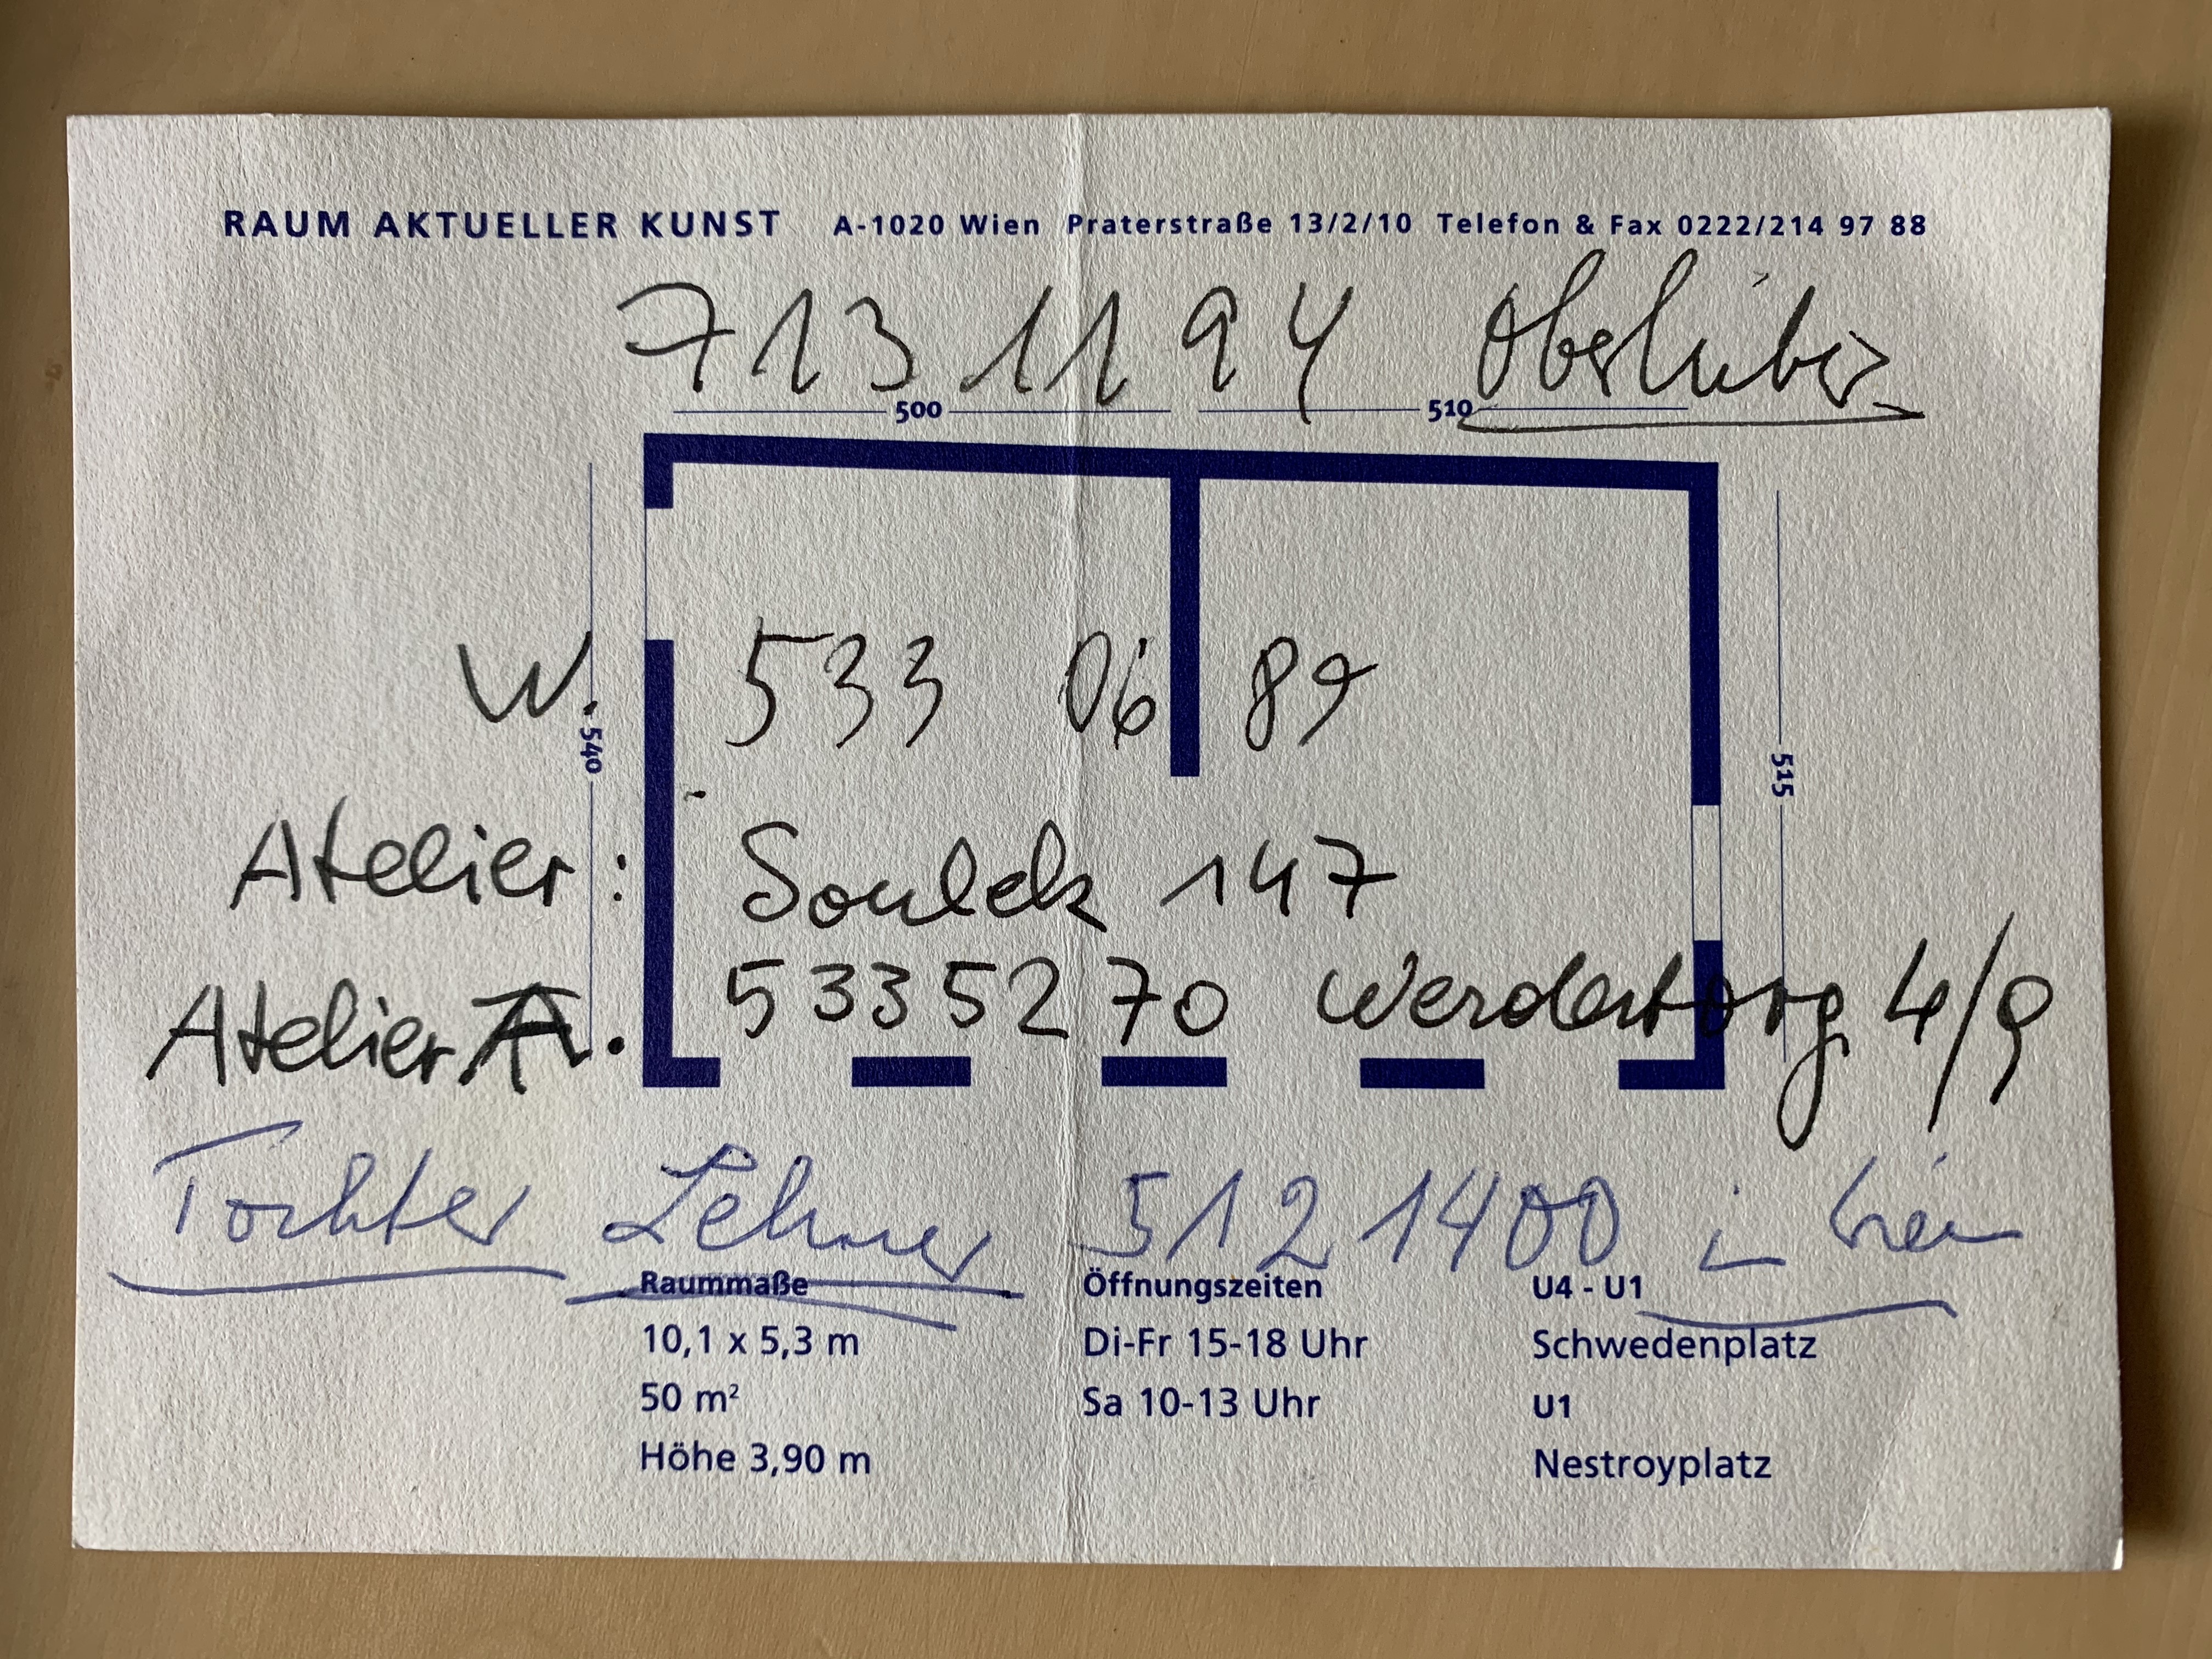 RAUM AKTUELLER KUNST A-1020 Wien Praterstraße 13/2/10 Telefon & Fax 0222/214 97 88
713 11 94 Oberhuber
500 510
W. 533 06 89
540
515
Atelier: Soulek 147
Atelier A. 533 52 70 Werdertorg 4/9
Tochter Lehner 512 1400 in Wien
Raummaße Öffnungszeiten U4 - U1
10,1 x 5,3 m Di-Fr 15-18 Uhr Schwedenplatz
50 m² Sa 10-13 Uhr U1
Höhe 3,90 m Nestroyplatz